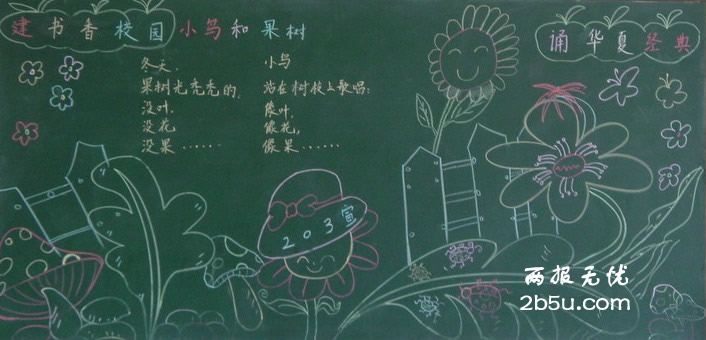 建书香校园
小鸟和果树
诵华夏经典
冬天，
果树光秃秃的，
没叶，
没花，
没果……
小鸟
站在树枝上歌唱：
像叶，
像花，
像果……
203宣
两报无忧
2b5u.com